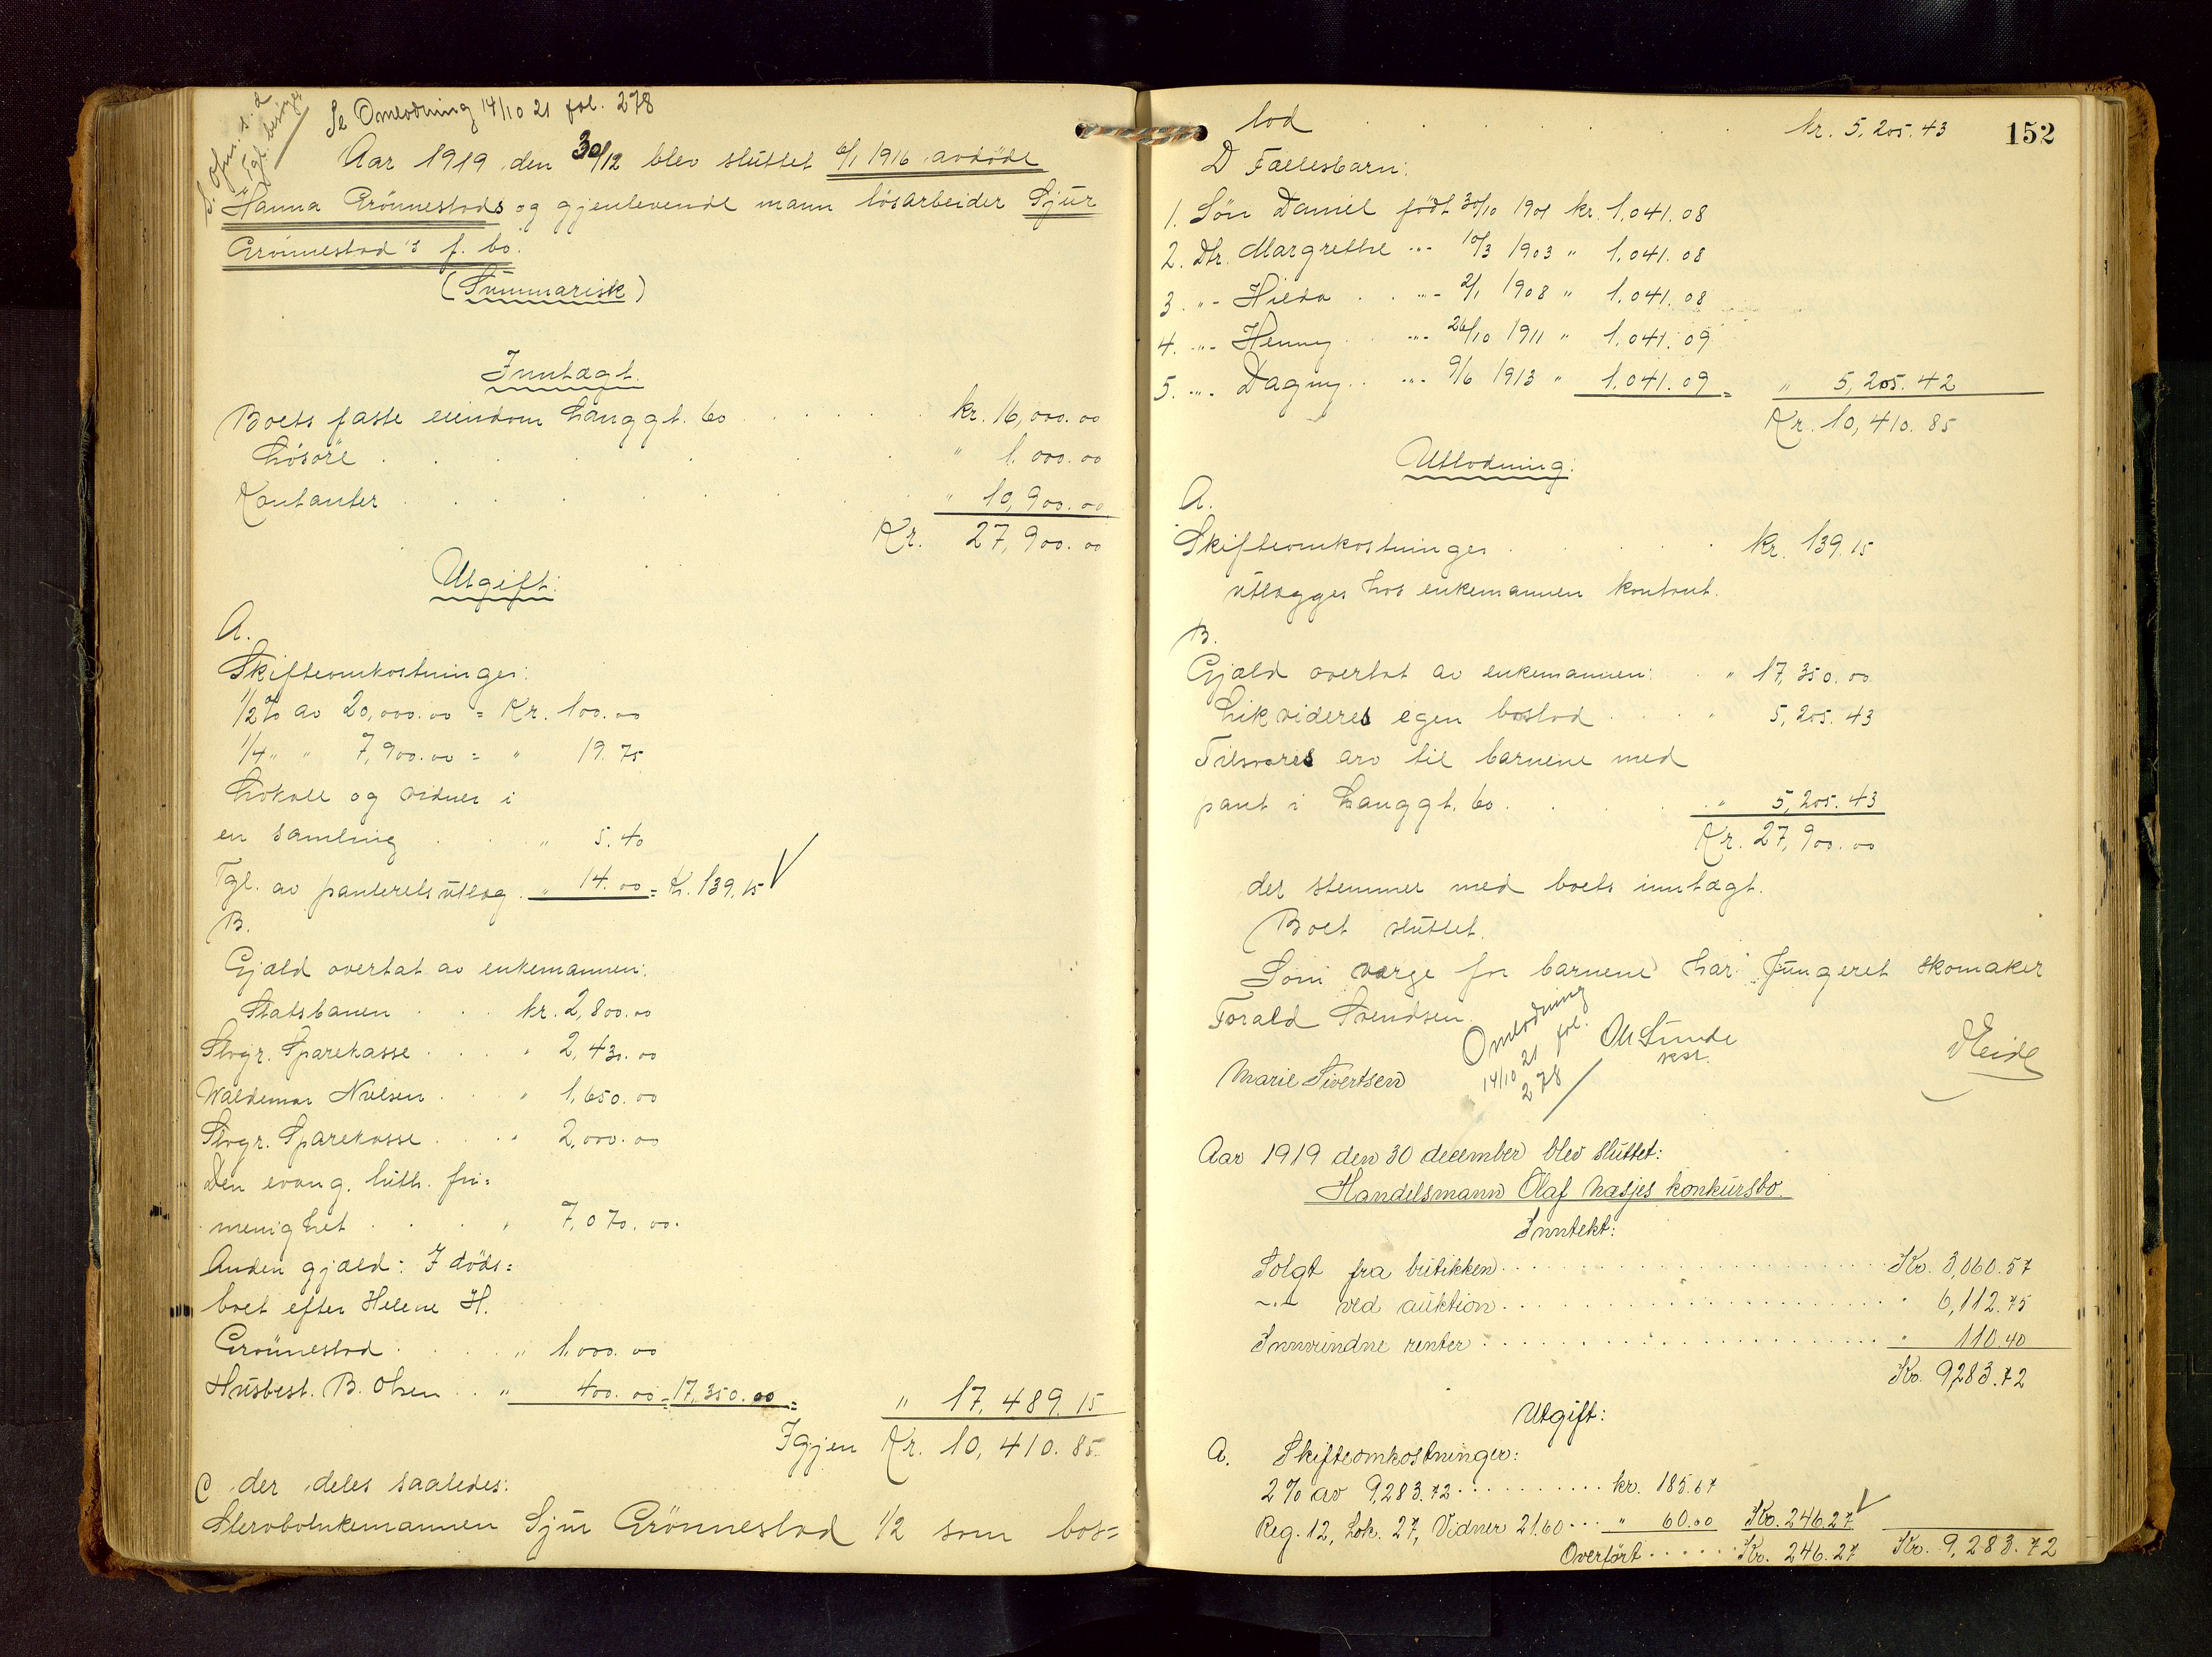 Se Omlodning 14/10 21 fol. 278
Aar 1919 den 30/12 blev sluttet 6/1 1916 avdöde
Hanna Grönnestads og gjenlevende mann lösarbeider Sjur
Grönnestad's f. bo.
(Summarisk)
Inntægt.
Boets faste eiendom Langgt. 60 . . . . kr. 16,000.00
Lösöre . . . . . . " 1.000.00
Kontanter . . . . . . " 10,900.00
Kr. 27,900.00
Utgift:
A.
Skifteomkostninger:
1/2% av 20,000.00 = Kr. 100.00
1/4 " " 7,900.00 = " 19.75
Lokale og vidner i
en samling . . . " 5.40
Tgl. av panteretsutlæg . " 14.00 = Kr. 139.15 √
B.
Gjæld overtat av enkemannen:
Statsbanen . . . kr. 2,800.00
Stvgr. Sparekasse . . . " 2,430.00
Waldemar Nielsen . . . " 1,650.00
Stvgr. Sparekasse . . . " 2,000.00
Den evang. luth. fri=
menighet . . . " 7,070.00.
Anden gjæld: I döds=
boet efter Helene H.
Grönnestad . . . " 1.000.00
Husbest. B. Olsen . . " 400.00 = 17,350.00 = " 17,489.15
Igjen Kr. 10,410.85.
C der deles saaledes:
Stervboenkemannen Sjur Grönnestad 1/2 som bos=
lod . . . . . . kr. 5,205.43
152
D Fællesbarn:
1. Sön Daniel födt 30/10 1901 kr. 1,041.08
2. Dtr. Margrethe -"- 10/3 1903 " 1,041.08
3. -"- Hilda . . -"- 2/1 1908 " 1,041.08
4. -"- Henny . . -"- 26/10 1911 " 1,041.09
5. -"- Dagny . . -"- 9/6 1913 " 1,041.09 = " 5,205.42
Kr. 10,410.85
Utlodning:
A.
Skifteomkostninger . . . . . kr. 139.15
utlægges hos enkemannen kontant.
B.
Gjæld overtat av enkemannen: . " 17,350.00
Likvideres egen boslod . . . " 5,205.43
Tilsvares arv til barnene med
pant i Langgt. 60. . . . . " 5,205.43
Kr. 27,900.00
der stemmer med boets inntægt.
Boet sluttet.
Som værge for barnene har fungeret skomaker
Torald Svendsen.
Omlodning
14/10 21 fol.
278
Marie Sivertsen
Ole Sunde
ksr.
Aar 1919 den 30 december blev sluttet:
Handelsmann Olaf Næsjes konkursbo.
Inntekt:
Solgt fra butikken . . . . . . Kr. 3,060.57
-"- ved auktion . . . . . . " 6,112.75
Innvundne renter . . . . . . " 110.40
Kr. 9283.72
Utgift:
A. Skifteomkostninger:
2% av 9,283.72 . . . . . kr. 185.67
Reg. 12, Lok. 27, Vidner 21.60 . . " 60.60 Kr. 246.27 √
Overfört . . . . . Kr. 246.27 Kr. 9,283.72